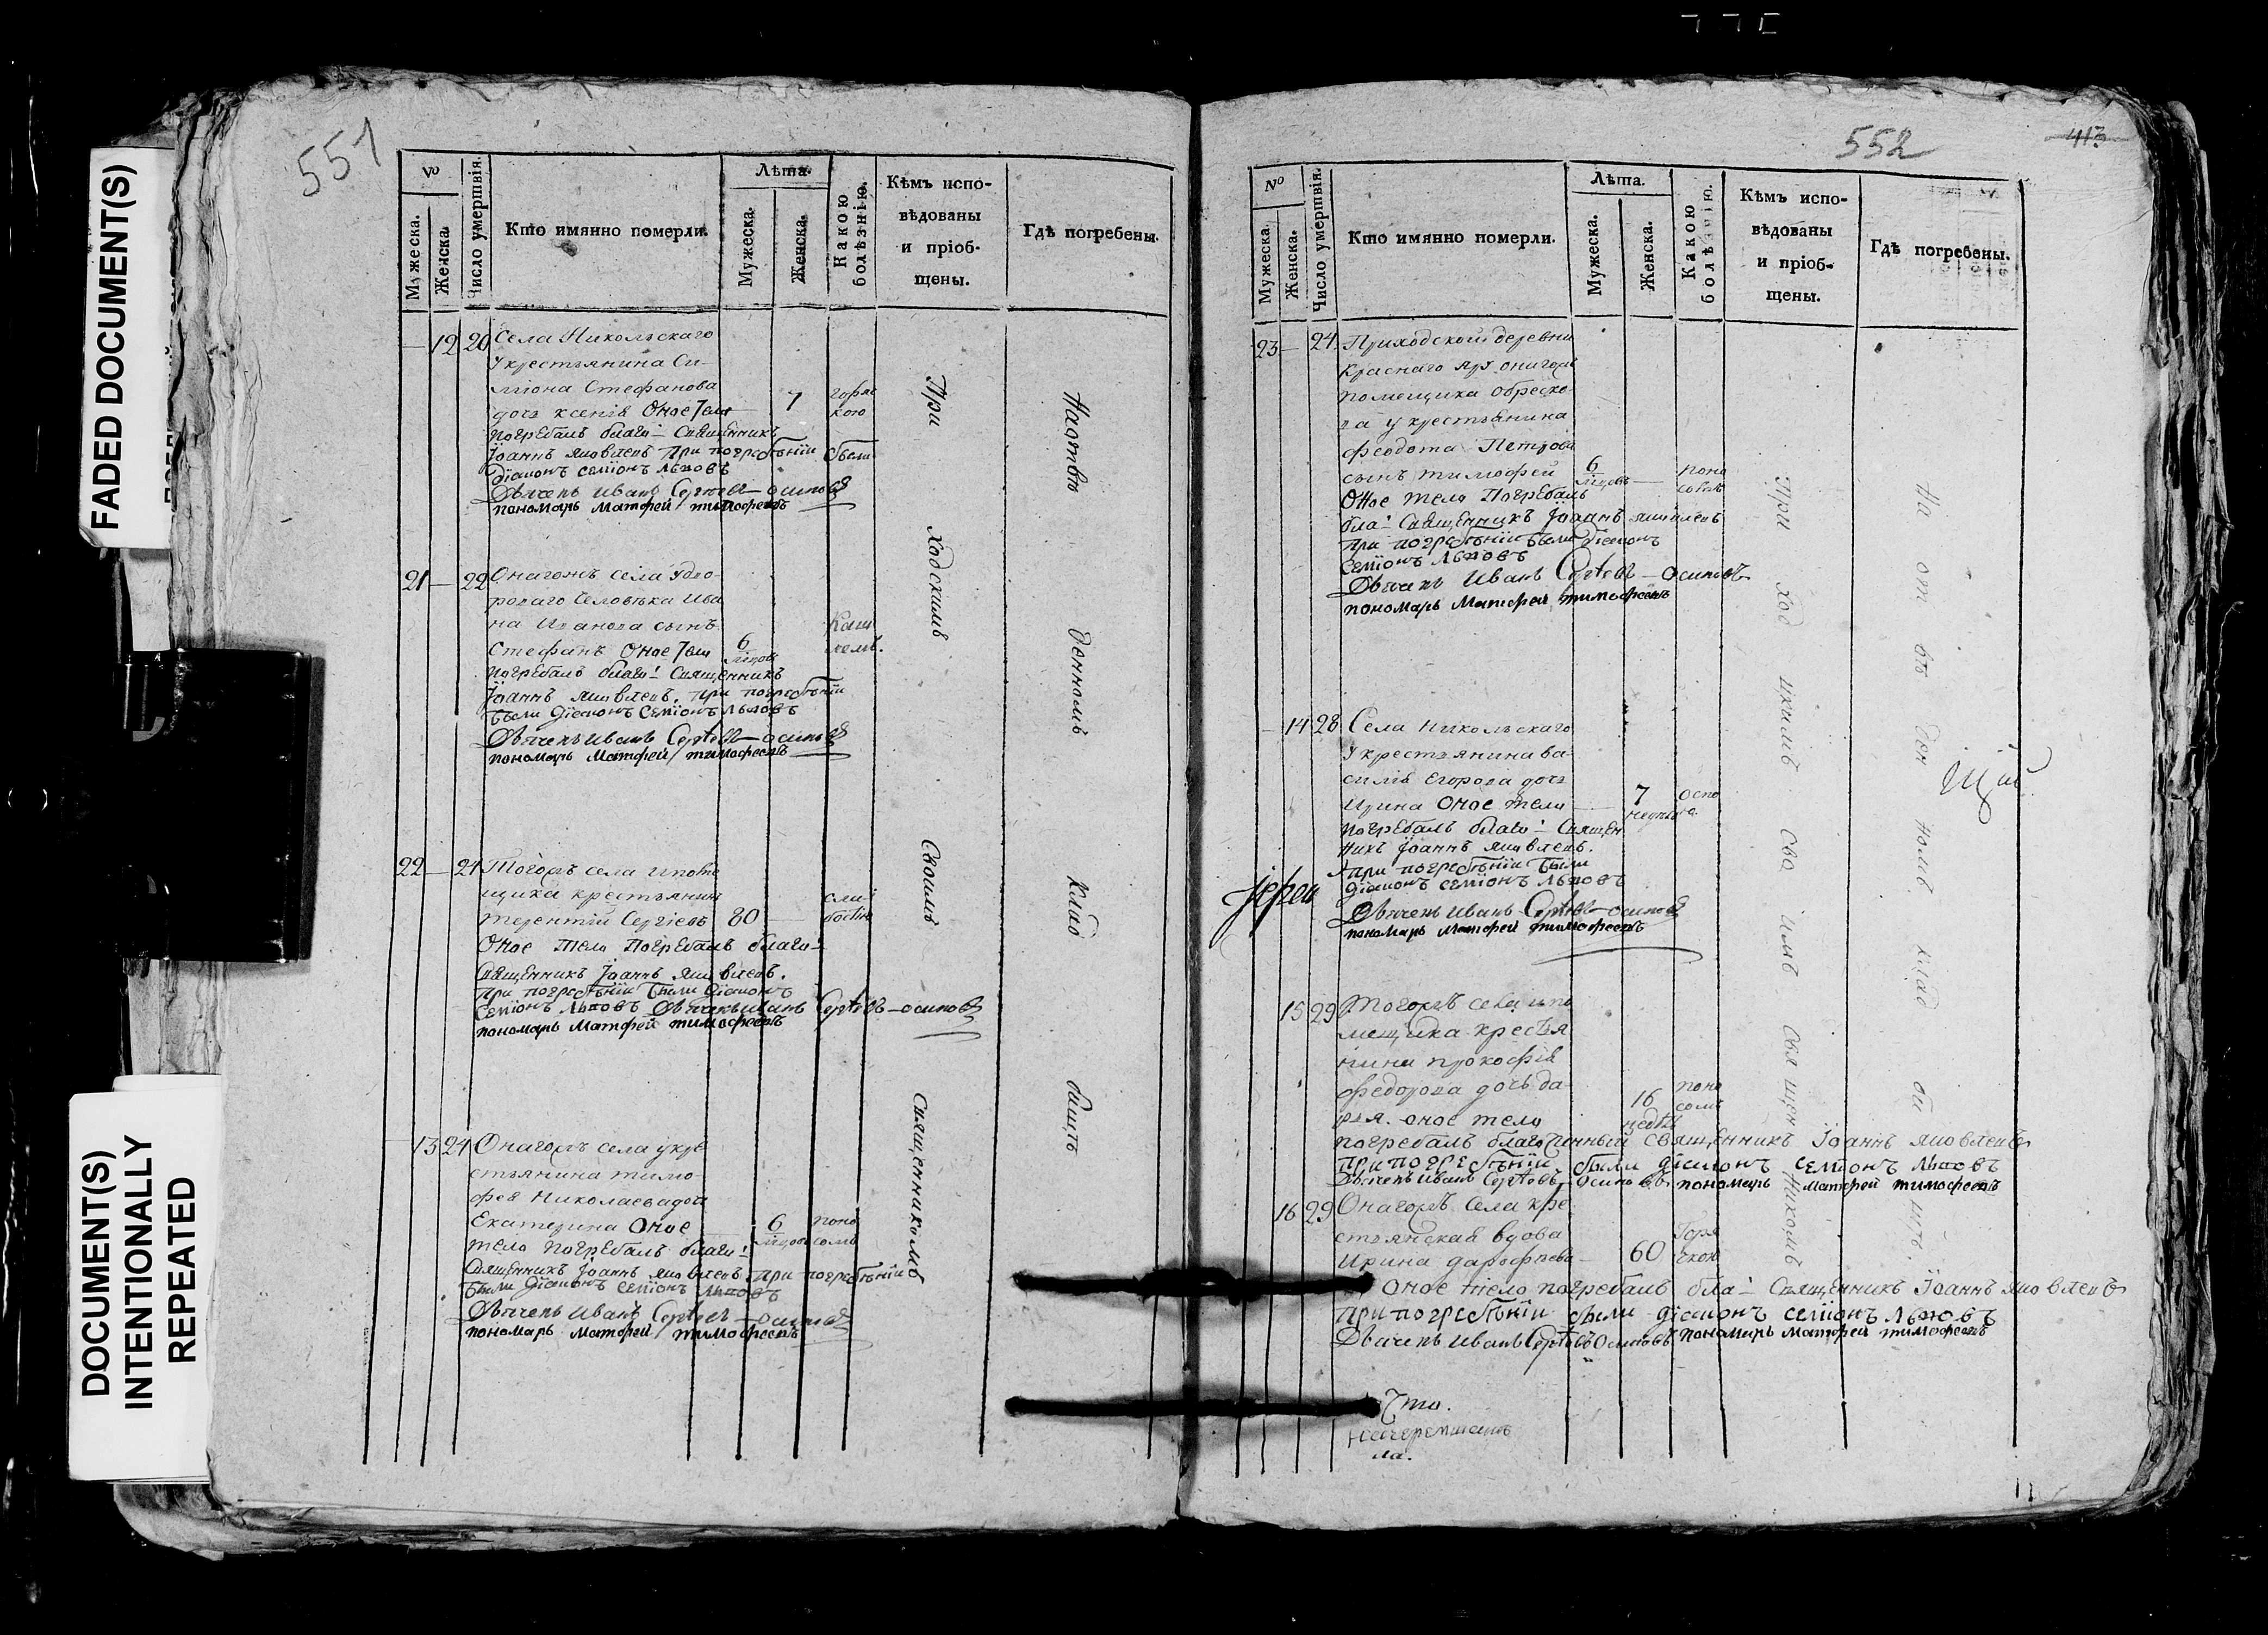 FADED DOCUMENT(S)
DOCUMENT(S)
INTENTIONALLY
REPEATED
551
№
Мужеска.
Женска.
Число умершвія.
Кто имянно померли.
Лѣта.
Мужеска.
Женска.
Какою болѣзнію.
Кѣмъ испо-
вѣдованы
и пріоб-
щены.
Гдѣ погребены.
12 20 Села Никольскаго
У крестьянина Си-
міона Стефанова
дочь ксенія Оное тело 7 горяч
кою
погребалъ благо: Священникъ
Іоаннъ Яковлевъ При погребѣніи были
Діаконъ семіонъ Львовъ
Дьячекъ иванъ Сергѣевъ осиповъ
пономарь Матфей тимофеевъ
21 22 Онагожъ села у дво-
роваго человѣка Ива
на Иванова сынъ
Стефанъ Оное тело 6 мцовъ каш
лемъ.
погребалъ благо: Священникъ
Іоаннъ Яковлевъ. при погребѣніи
были діаконъ Семіонъ Львовъ
Дьячекъ иванъ Сергѣевъ осиповъ
пономарь Матфей тимофеевъ
22 24 Тогожъ села и поме
щика крестьянинъ
терентій Сергіевъ 80
Оное тело погребалъ благо:
Священникъ Іоаннъ Яковлевъ.
При погребѣніи были діаконъ
Семіонъ Львовъ Дьячекъ иванъ Сергѣевъ осиповъ
пономарь Матфей тимофеевъ
13 24 Онагожъ села у кре
стьянина тимо
фея Николаева дочь
Екатерина Оное 6 мцовъ поно
сомъ
тело погребалъ благо:
Священникъ Іоаннъ Яковлевъ. При погребѣніи
были діаконъ Семіонъ Львовъ
Дьячекъ иванъ Сергѣевъ осиповъ
пономарь Матфей тимофеевъ
При ходскимъ Своимъ священникомъ
На отве денномъ клад бищѣ
552
413
№
Мужеска.
Женска.
Число умершвія.
Кто имянно померли.
Лѣта.
Мужеска.
Женска.
Какою болѣзнію.
Кѣмъ испо-
вѣдованы
и пріоб-
щены.
Гдѣ погребены.
23 24 Приходской деревни
Краснаго яру
помещика Обреско-
ва у крестьянина
феодота Петрова
сынъ тимофей 6 мцовъ поно
сомъ
Оное тело погребалъ
бла: Священникъ Іоаннъ Яковлевъ
при погребѣніи были діаконъ
Семіонъ Львовъ
Дьячекъ иванъ Сергѣевъ осиповъ
пономарь Матфей тимофеевъ
14 28 Села Никольскаго
У крестьянина ва
силія Егорова дочь
Ирина Оное тело 7 недель оспо
ю
погребалъ благо: Священ
никъ Іоаннъ Яковлевъ.
При погребѣніи были
діаконъ семіонъ Львовъ
Іерей
Дьячекъ иванъ Сергѣевъ осиповъ
пономарь Матфей тимофеевъ
15 29 Тогожъ села и по
мещика крестья
нина прокофія
федорова дочь да-
рья. оное тело 16 недѣль поно
сомъ
погребалъ благочинный священникъ Іоаннъ Яковлевъ
При погребѣніи были діаконъ семіонъ Львовъ
Дьячекъ иванъ Сергѣевъ осиповъ пономарь матфей тимофеевъ
16 29 Онагожъ села кре
стьянская вдова
Ирина дарофеева 60 Горя
чкою
Оное тело погребалъ бла: Священникъ Іоаннъ Яковлевъ
При погребѣніи были діаконъ семіонъ Львовъ
Дьячекъ иванъ Сергѣевъ Осиповъ пономарь матфей тимофеевъ
При ход скимъ сво имъ свя щен никомъ
На от ве ден номъ клад би щѣ.